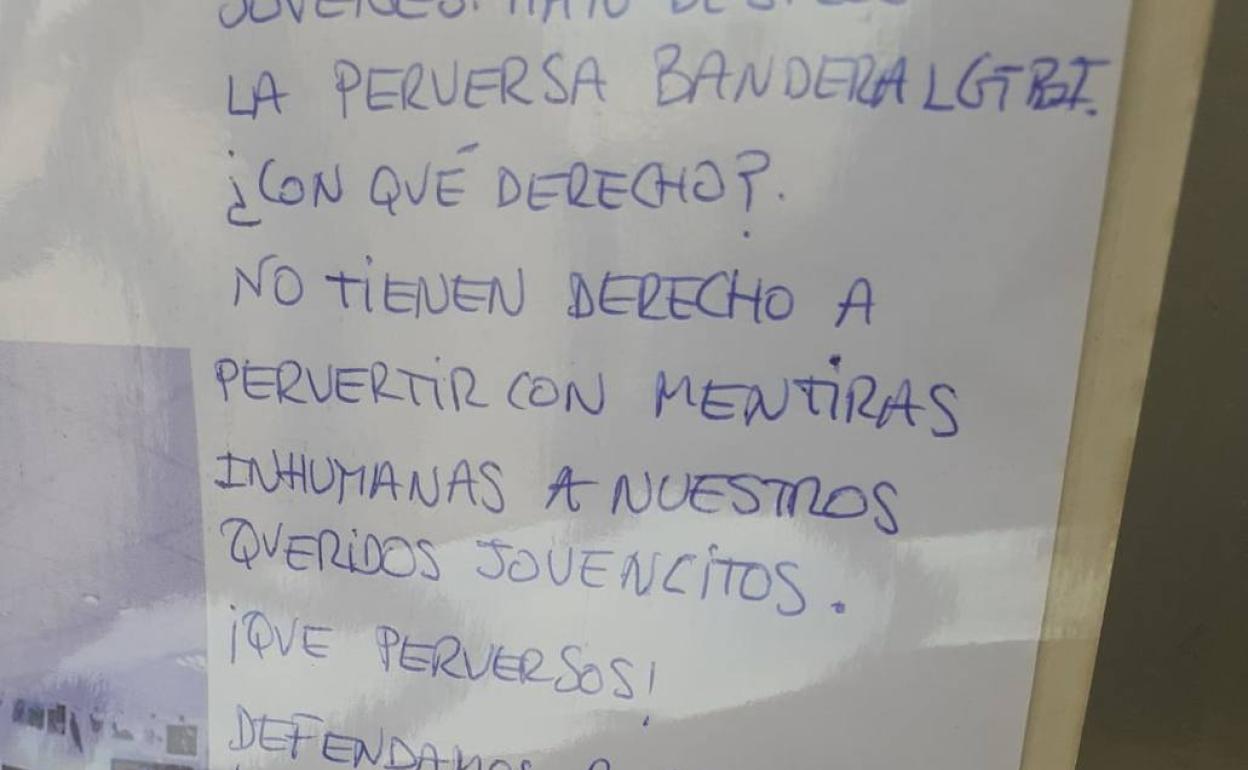 LA PERVERSA BANDERA LGTBI.
¿CON QUÉ DERECHO?.
NO TIENEN DERECHO A
PERVERTIR CON MENTIRAS
INHUMANAS A NUESTROS
QUERIDOS JOVENCITOS.
¡QUE PERVERSOS!
DEFENDAMOS